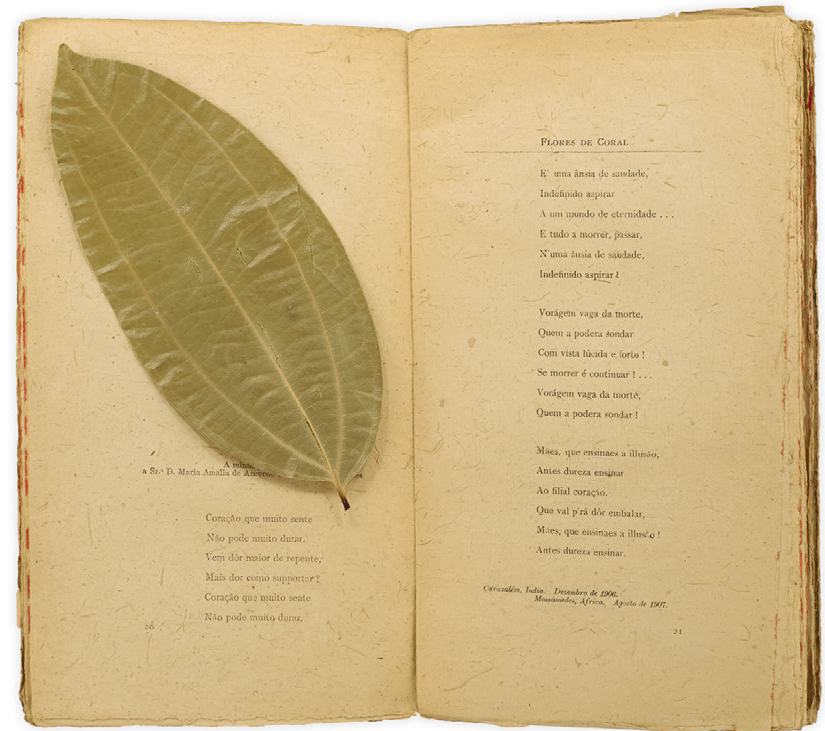 A minh
a Sr.ª D. Maria Amalia de Azeve
es
Coração que muito sente
Não pode muito durar.
Vem dôr maior de repente,
Mais dor como supportar?
Coração que muito sente
Não pode muito durar.
20
FLORES DE CORAL
E' uma ânsia de saudade,
Indefinido aspirar
A um mundo de eternidade . . .
E tudo a morrer, passar,
N'uma ânsia de saudade,
Indefinido aspirar !
Vorágem vaga da morte,
Quem a podera sondar
Com vista lúcida e forte !
Se morrer é continuar ! . . .
Vorágem vaga da morte,
Quem a podera sondar !
Mães, que ensinaes a illusão,
Antes dureza ensinar
Ao filial coração.
Que val p'rá dôr embalar,
Mães, que ensinaes a illusão !
Antes dureza ensinar.
India. Dezembro de 1906.
Mossâmedes, Africa, Agosto de 1907.
21